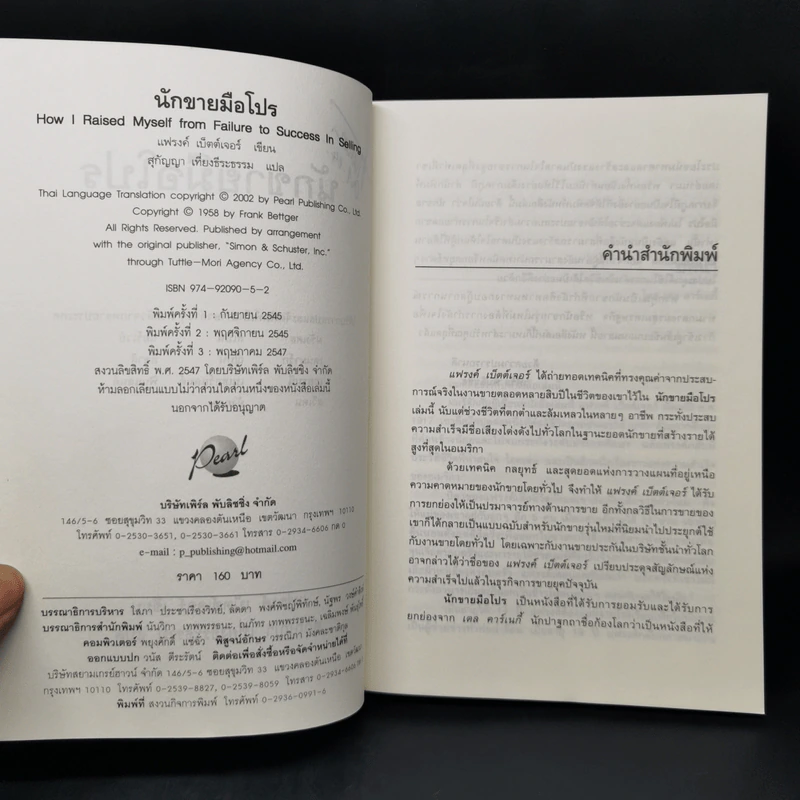 นักขายมือโปร
How I Raised Myself from Failure to Success In Selling
แฟรงค์ เบ็ตต์เจอร์ เขียน
สุกัญญา เที่ยงธีระธรรม แปล
Thai Language Translation copyright © 2002 by Pearl Publishing Co., Ltd.
Copyright © 1958 by Frank Bettger
All Rights Reserved. Published by arrangement
with the original publisher, "Simon & Schuster, Inc."
through Tuttle-Mori Agency Co., Ltd.
ISBN 974-92090-5-2
พิมพ์ครั้งที่ 1 : กันยายน 2545
พิมพ์ครั้งที่ 2 : พฤศจิกายน 2545
พิมพ์ครั้งที่ 3 : พฤษภาคม 2547
สงวนลิขสิทธิ์ พ.ศ. 2547 โดยบริษัทเพิร์ล พับลิชซิ่ง จำกัด
ห้ามลอกเลียนแบบไม่ว่าส่วนใดส่วนหนึ่งของหนังสือเล่มนี้
นอกจากได้รับอนุญาต
Pearl
บริษัทเพิร์ล พับลิชซิ่ง จำกัด
146/5-6 ซอยสุขุมวิท 33 แขวงคลองตันเหนือ เขตวัฒนา กรุงเทพฯ 10110
โทรศัพท์ 0-2530-3651, 0-2530-3661 โทรสาร 0-2934-6606 กด 0
e-mail : p_publishing@hotmail.com
ราคา 160 บาท
บรรณาธิการบริหาร โสภา ประชาเรืองวิทย์, ลัดดา พงศ์พิชญ์พิทักษ์, นัฐพร
บรรณาธิการสำนักพิมพ์ นันวิกา เทพพรรธนะ, ณภัทร เทพพรรธนะ,
คอมพิวเตอร์ พยุงศักดิ์ แซ่จิ๋ว พิสูจน์อักษร วรรณิภา มังคละชาติกุล
ออกแบบปก วนัส ตีระรัตน์ ติดต่อเพื่อสั่งซื้อหรือจัดจำหน่ายได้ที่
บริษัทสยามเกรย์ฮาวน์ จำกัด 146/5-6 ซอยสุขุมวิท 33 แขวงคลองตันเหนือ
กรุงเทพฯ 10110 โทรศัพท์ 0-2539-8827, 0-2539-8059 โทรสาร 0-2934-6606
พิมพ์ที่ สงวนกิจการพิมพ์ โทรศัพท์ 0-2936-0991-6
คำนำสำนักพิมพ์
แฟรงค์ เบ็ตต์เจอร์ ได้ถ่ายทอดเทคนิคที่ทรงคุณค่าจากประสบ-
การณ์จริงในงานขายตลอดหลายสิบปีในชีวิตของเขาไว้ใน นักขายมือโปร
เล่มนี้ นับแต่ช่วงชีวิตที่ตกต่ำและล้มเหลวในหลายๆ อาชีพ กระทั่งประสบ
ความสำเร็จมีชื่อเสียงโด่งดังไปทั่วโลกในฐานะยอดนักขายที่สร้างรายได้
สูงที่สุดในอเมริกา
ด้วยเทคนิค กลยุทธ์ และสุดยอดแห่งการวางแผนที่อยู่เหนือ
ความคาดหมายของนักขายโดยทั่วไป จึงทำให้ แฟรงค์ เบ็ตต์เจอร์ ได้รับ
การยกย่องให้เป็นปรมาจารย์ทางด้านการขาย อีกทั้งกลวิธีในการขายของ
เขาก็ได้กลายเป็นแบบฉบับสำหรับนักขายรุ่นใหม่ที่นิยมนำไปประยุกต์ใช้
กับงานขายโดยทั่วไป โดยเฉพาะกับงานขายประกันในบริษัทชั้นนำทั่วโลก
อาจกล่าวได้ว่าชื่อของ แฟรงค์ เบ็ตต์เจอร์ เปรียบประดุจสัญลักษณ์แห่ง
ความสำเร็จไปแล้วในธุรกิจการขายยุคปัจจุบัน
นักขายมือโปร เป็นหนังสือที่ได้รับการยอมรับและได้รับการ
ยกย่องจาก เดล คาร์เนกี้ นักปาฐกถาชื่อก้องโลกว่าเป็นหนังสือที่ให้